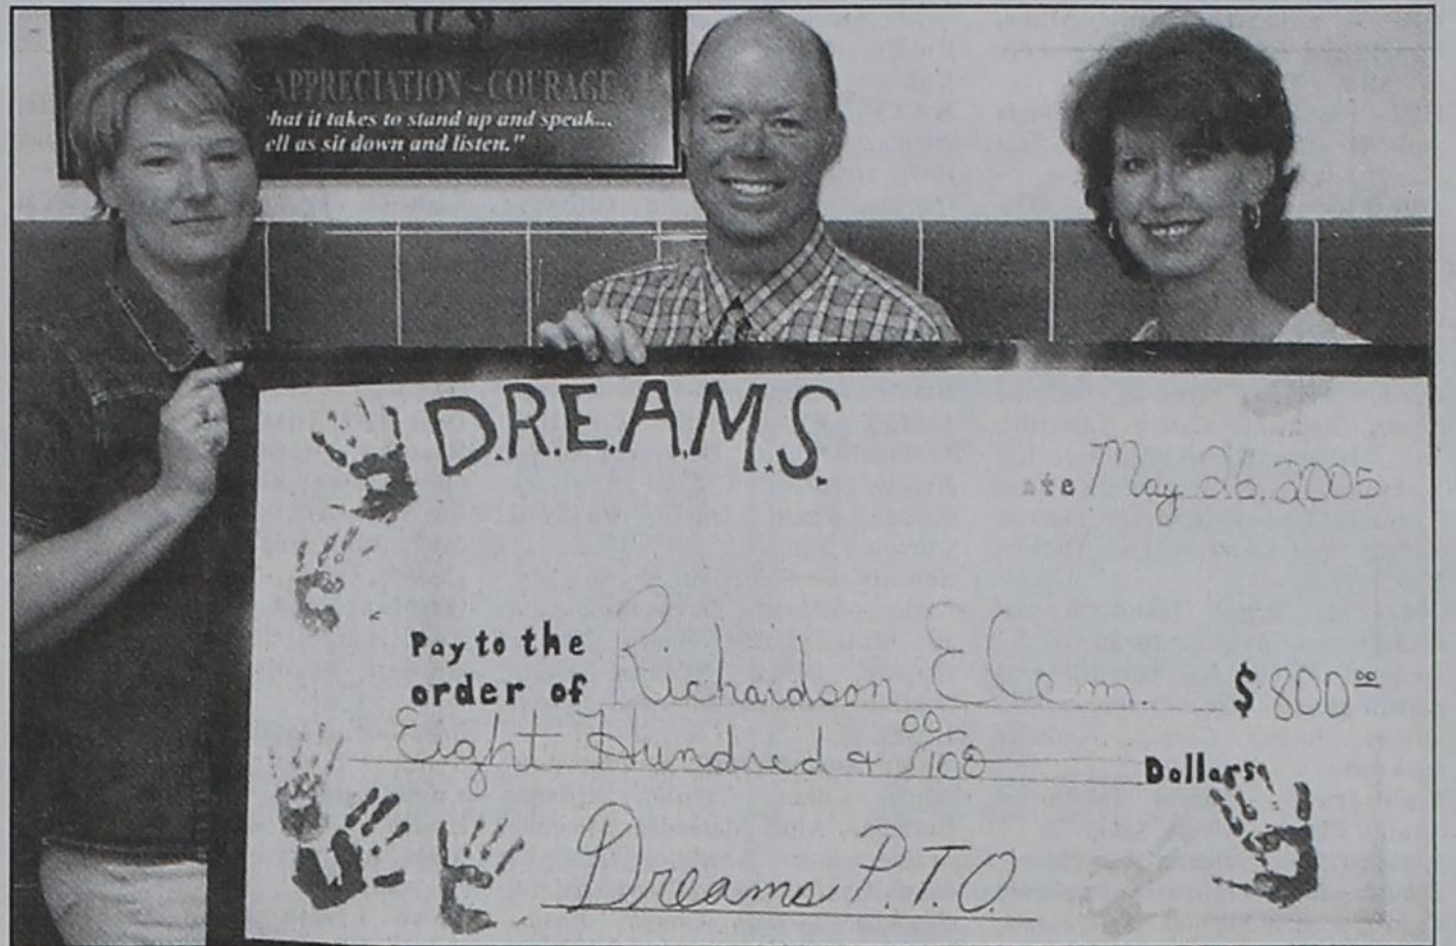 APPRECIATION ~ COURAGE
hat it takes to stand up and speak...
ell as sit down and listen."
D.R.E.A.M.S.
ate May 26. 2005
Pay to the
order of Richardson Elem. $ 800 00
Eight Hundred & 00/100 Dollars
Dreams P.T.O.